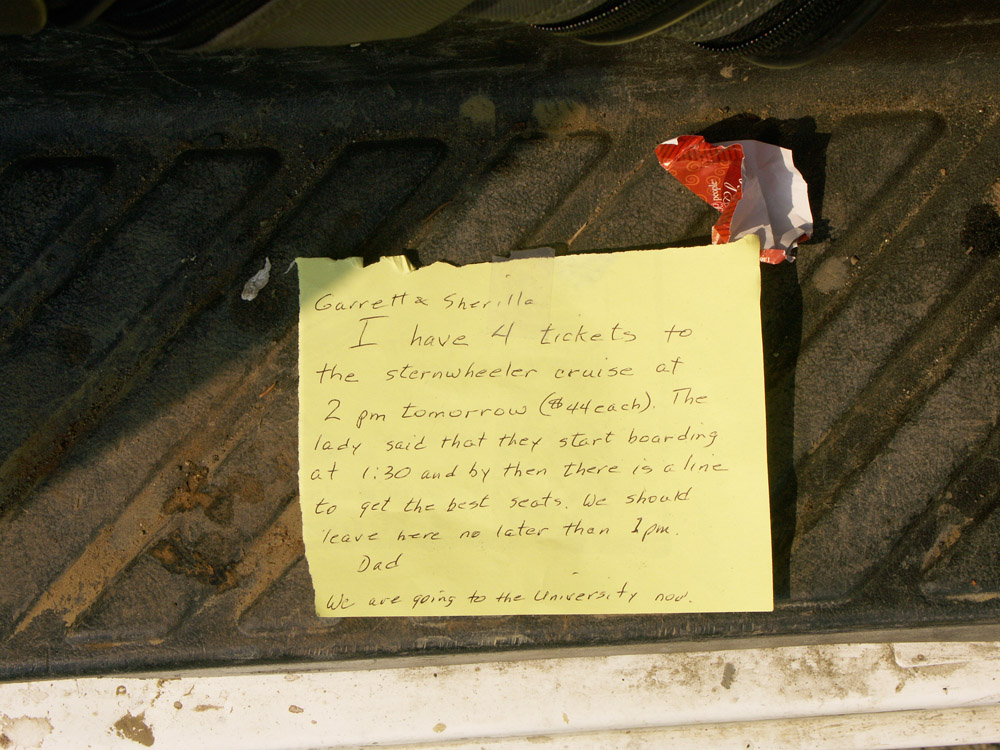 Garrett & Sherilla
I have 4 tickets to
the sternwheeler cruise at
2 pm tomorrow ($44 each). The
lady said that they start boarding
at 1:30 and by then there is a line
to get the best seats. We should
leave here no later than 1pm.
Dad
We are going to the University now.